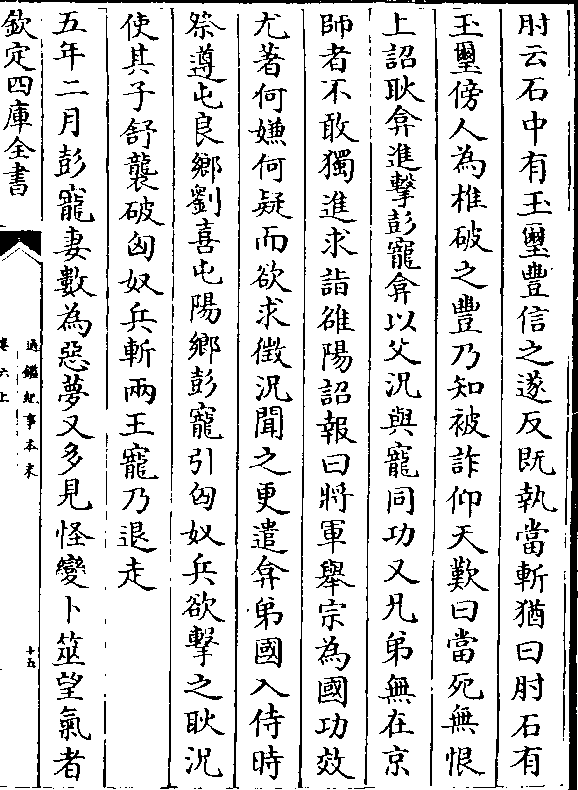 肘云石中有玉璽豐信之遂反既執當斬猶曰肘石有
玉璽傍人為椎破之豐乃知被詐仰天歎曰當死無恨
上詔耿弇進擊彭寵弇以父況與寵同功又兄弟無在京
師者不敢獨進求詣雒陽詔報曰將軍舉宗為國功效
尤著何嫌何疑而欲求徵況聞之更遣弇弟國入侍時
祭遵屯良鄉劉喜屯陽鄉彭寵引匈奴兵欲擊之耿況
使其子舒襲破匈奴兵斬兩王寵乃退走
五年二月彭寵妻數為惡夢又多見怪變卜筮望氣者
欽定四庫全書
通鑑紀事本末
卷六上
十五